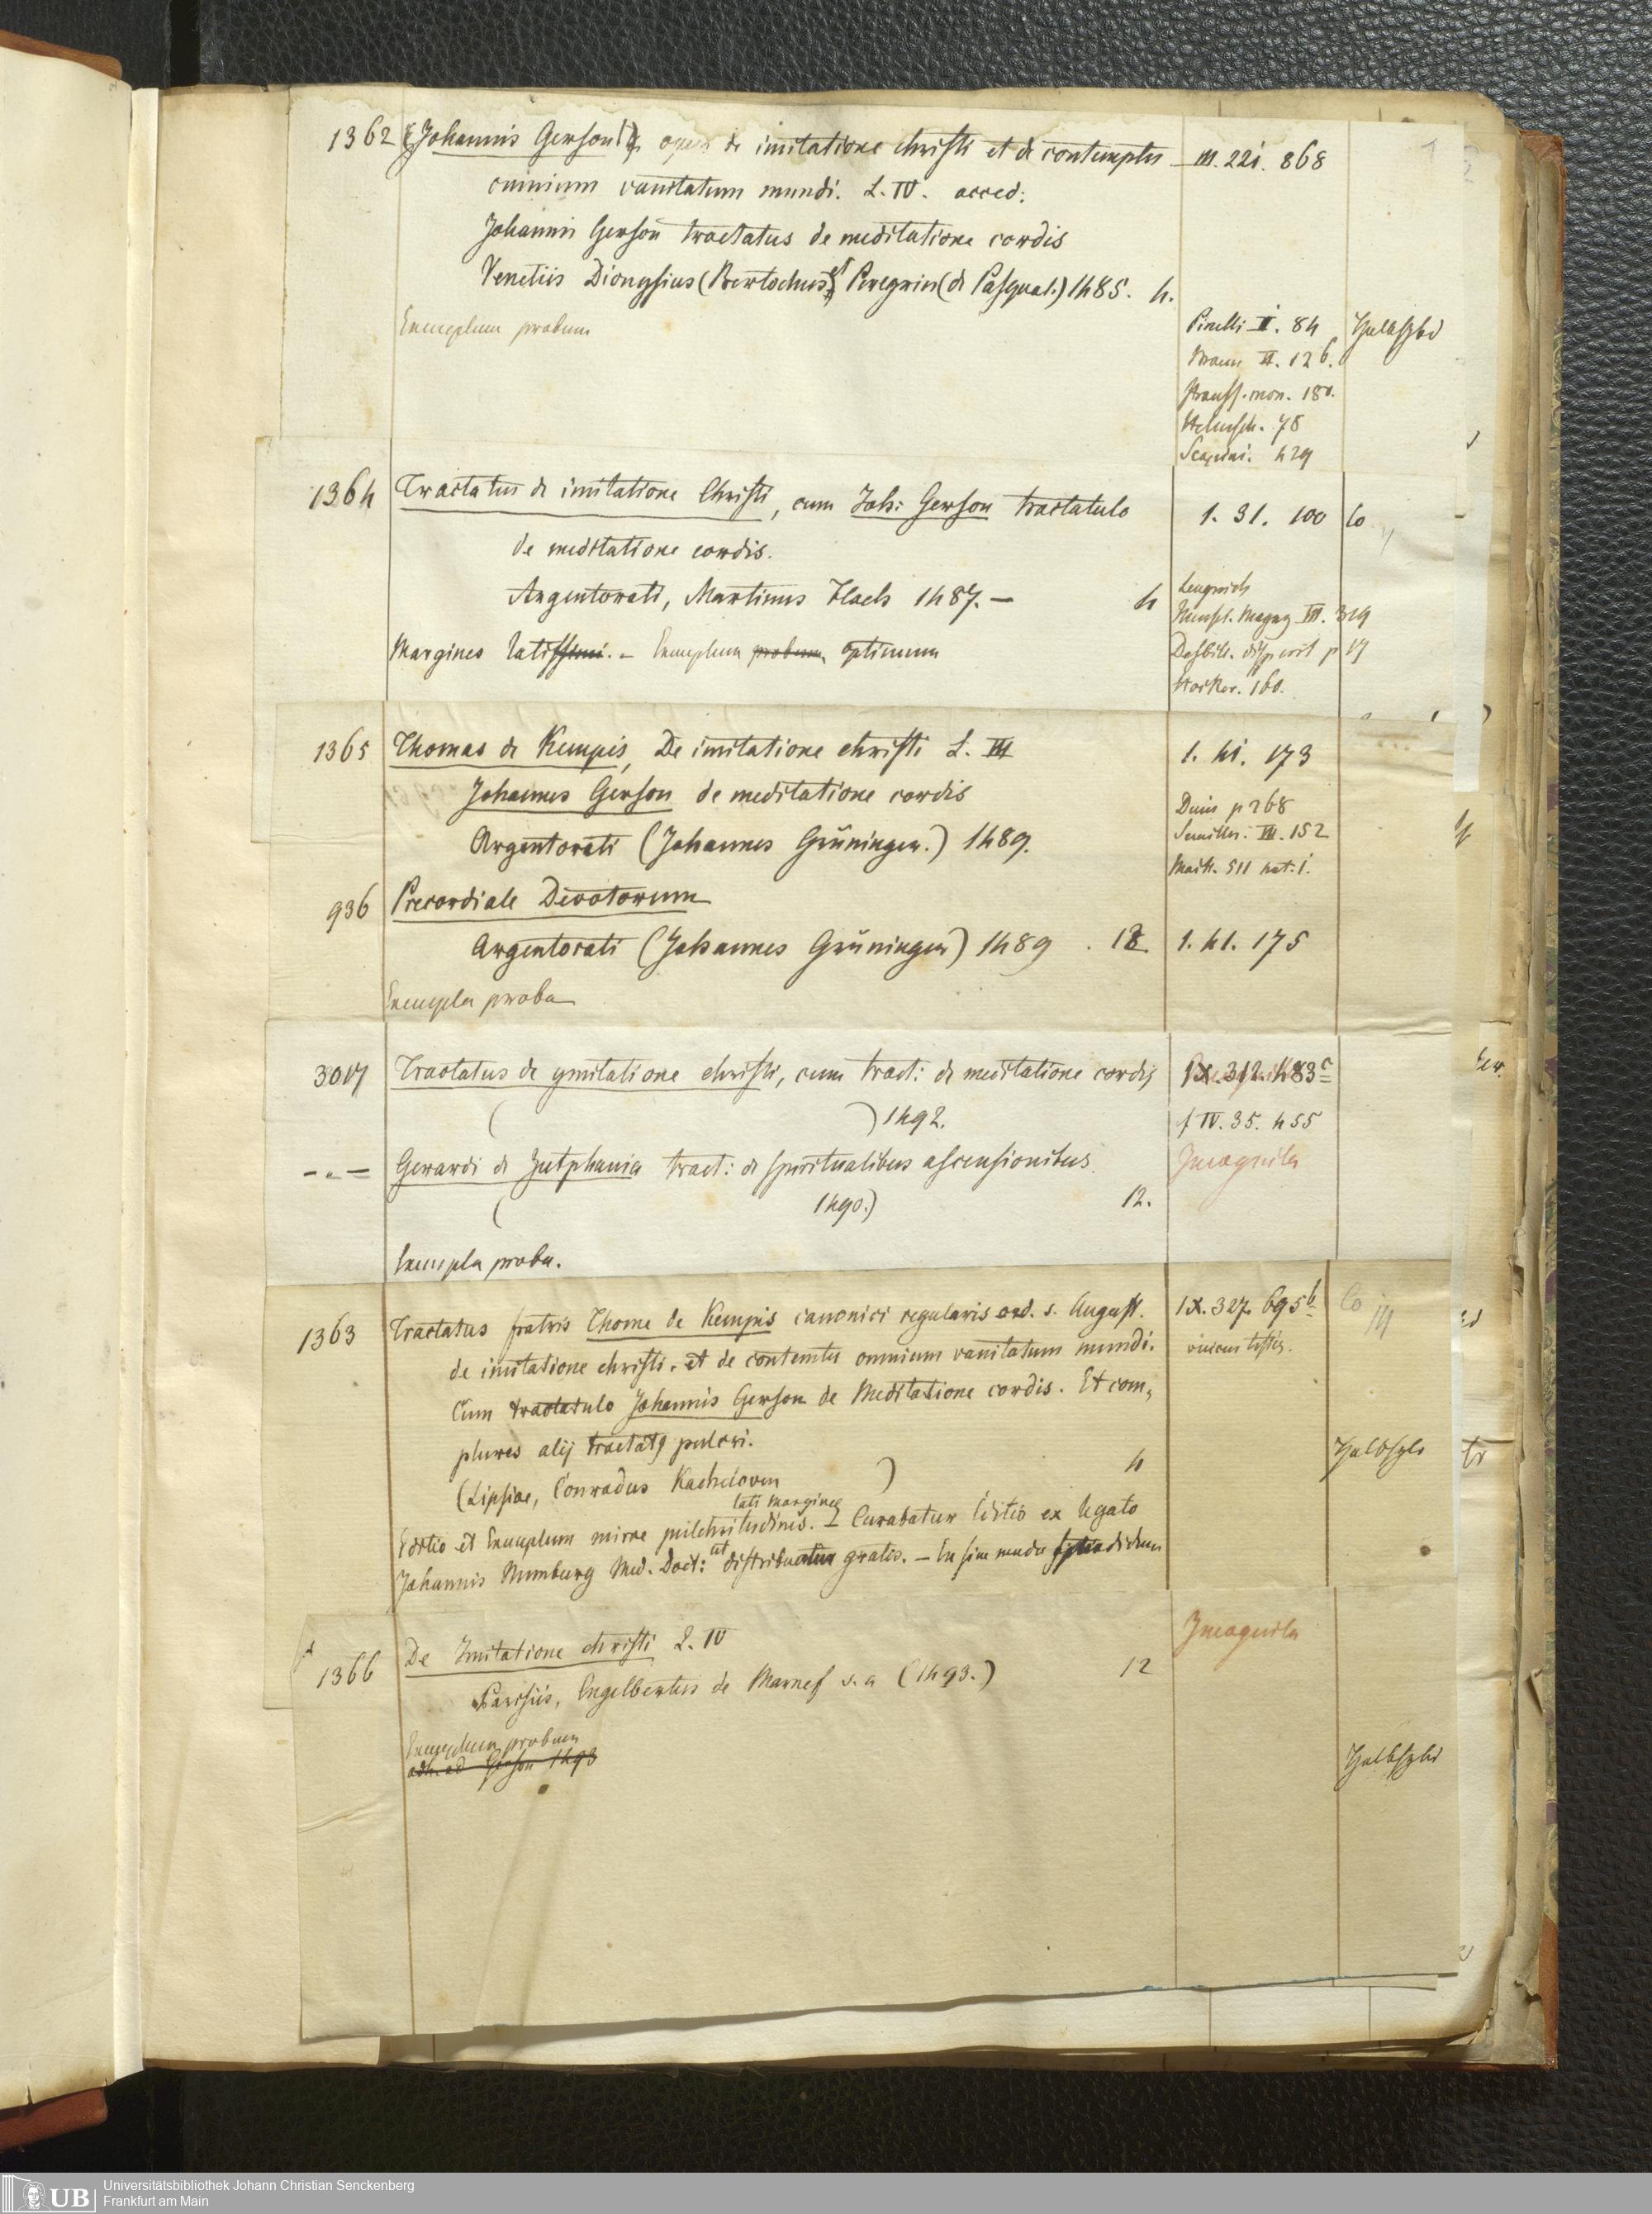 1362 (Johannis Gerson) de imitatione christi et de contemptu III. 221. 868
omnium vanitatum mundi. L. IV. acced:
Johannis Gerson tractatus de meditatione cordis
Venetiis Dionysius (Bertochus) et Peregrin (de Pasqual.) 1485. 4.
Exemplum probum
Pinelli II. 84 Halbfzbd
Braun II. 126.
Strauss. mon. 180.
Helmsch. 78
429
1364 Tractatus de imitatione Christi, cum Joh: Gerson tractatulo 1. 31. 100 Co
de meditatione cordis.
Argentorati, Martinus Flach 1487. — 4
Lengnich
Magaz III. 319
Margines latissimi. – Exemplum probum optimum
Desbill. p 17
160.
1365 Thomas de Kempis, De imitatione christi L. III 1. 41. 173
Johannes Gerson de meditatione cordis
p 268
Argentorati (Johannes Grüninger.) 1489.
Seemiller. III. 152
Mait. 511 not. 1.
936 Precordiale Devotorum
Argentorati (Johannes Grüninger) 1489 . 12 1. 41. 175
Exempla proba
3017 Tractatus de ymitatione christi, cum tract: de meditatione cordis IX. 312. 483 c
( ) 1492.
f IV. 35. 455
-"- Gerardi de Zutphania tract: de spiritualibus ascensionibus.
Incognita
( 1490.) 12.
Exempla proba.
1363 Tractatus fratris Thome de Kempis canonici regularis ord. s. August. IX. 327. 695 b Co
de imitatione christi. et de contemtu omnium vanitatum mundi.
Cum tractatulo Johannis Gerson de Meditatione cordis. Et com„
plures alij tractatq pulcri.
Halbfzb
(Lipsiae, Conradus Kacheloven ) 4
lati margines
Editio et Exemplum mirae pulchritudinis. – Curabatur Editio ex legato
Johannis Numburg Med. Doct: ut distribuatur gratis. –
1366 De Imitatione christi L. IV
Incognita
Parisiis, Engelbertus de Marnef s. a (1493.) 12
Exemplum probum
Halbfzbd
adh. ad Gerson 1493
Universitätsbibliothek Johann Christian Senckenberg
Frankfurt am Main
UB